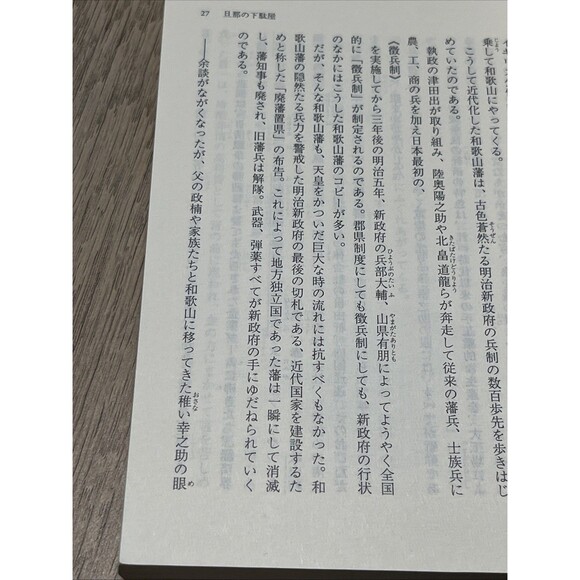 27 旦那の下駄屋
乗して和歌山にやってくる。
こうして近代化した和歌山藩は、古色蒼然たる明治新政府の兵制の数百歩先を歩きはじ
めていたのである。
執政の津田出が取り組み、陸奥陽之助や北畠道龍らが奔走して従来の藩兵、士族兵に
農、工、商の兵を加え日本最初の、
〈徴兵制〉
を実施してから三年後の明治五年、新政府の兵部大輔、山県有朋によってようやく全国
的に「徴兵制」が制定されるのである。郡県制度にしても徴兵制にしても、新政府の行状
のなかにはこうした和歌山藩のコピーが多い。
だが、そんな和歌山藩も、天皇をかついだ巨大な時の流れには抗すべくもなかった。和
歌山藩の隠然たる兵力を警戒した明治新政府の最後の切札である、近代国家を建設するた
めと称した「廃藩置県」の布告。これによって地方独立国であった藩は一瞬にして消滅
し、藩知事も廃され、旧藩兵は解隊。武器、弾薬すべてが新政府の手にゆだねられていく
のである。
――余談がながくなったが、父の政楠や家族たちと和歌山に移ってきた稚い幸之助の眼